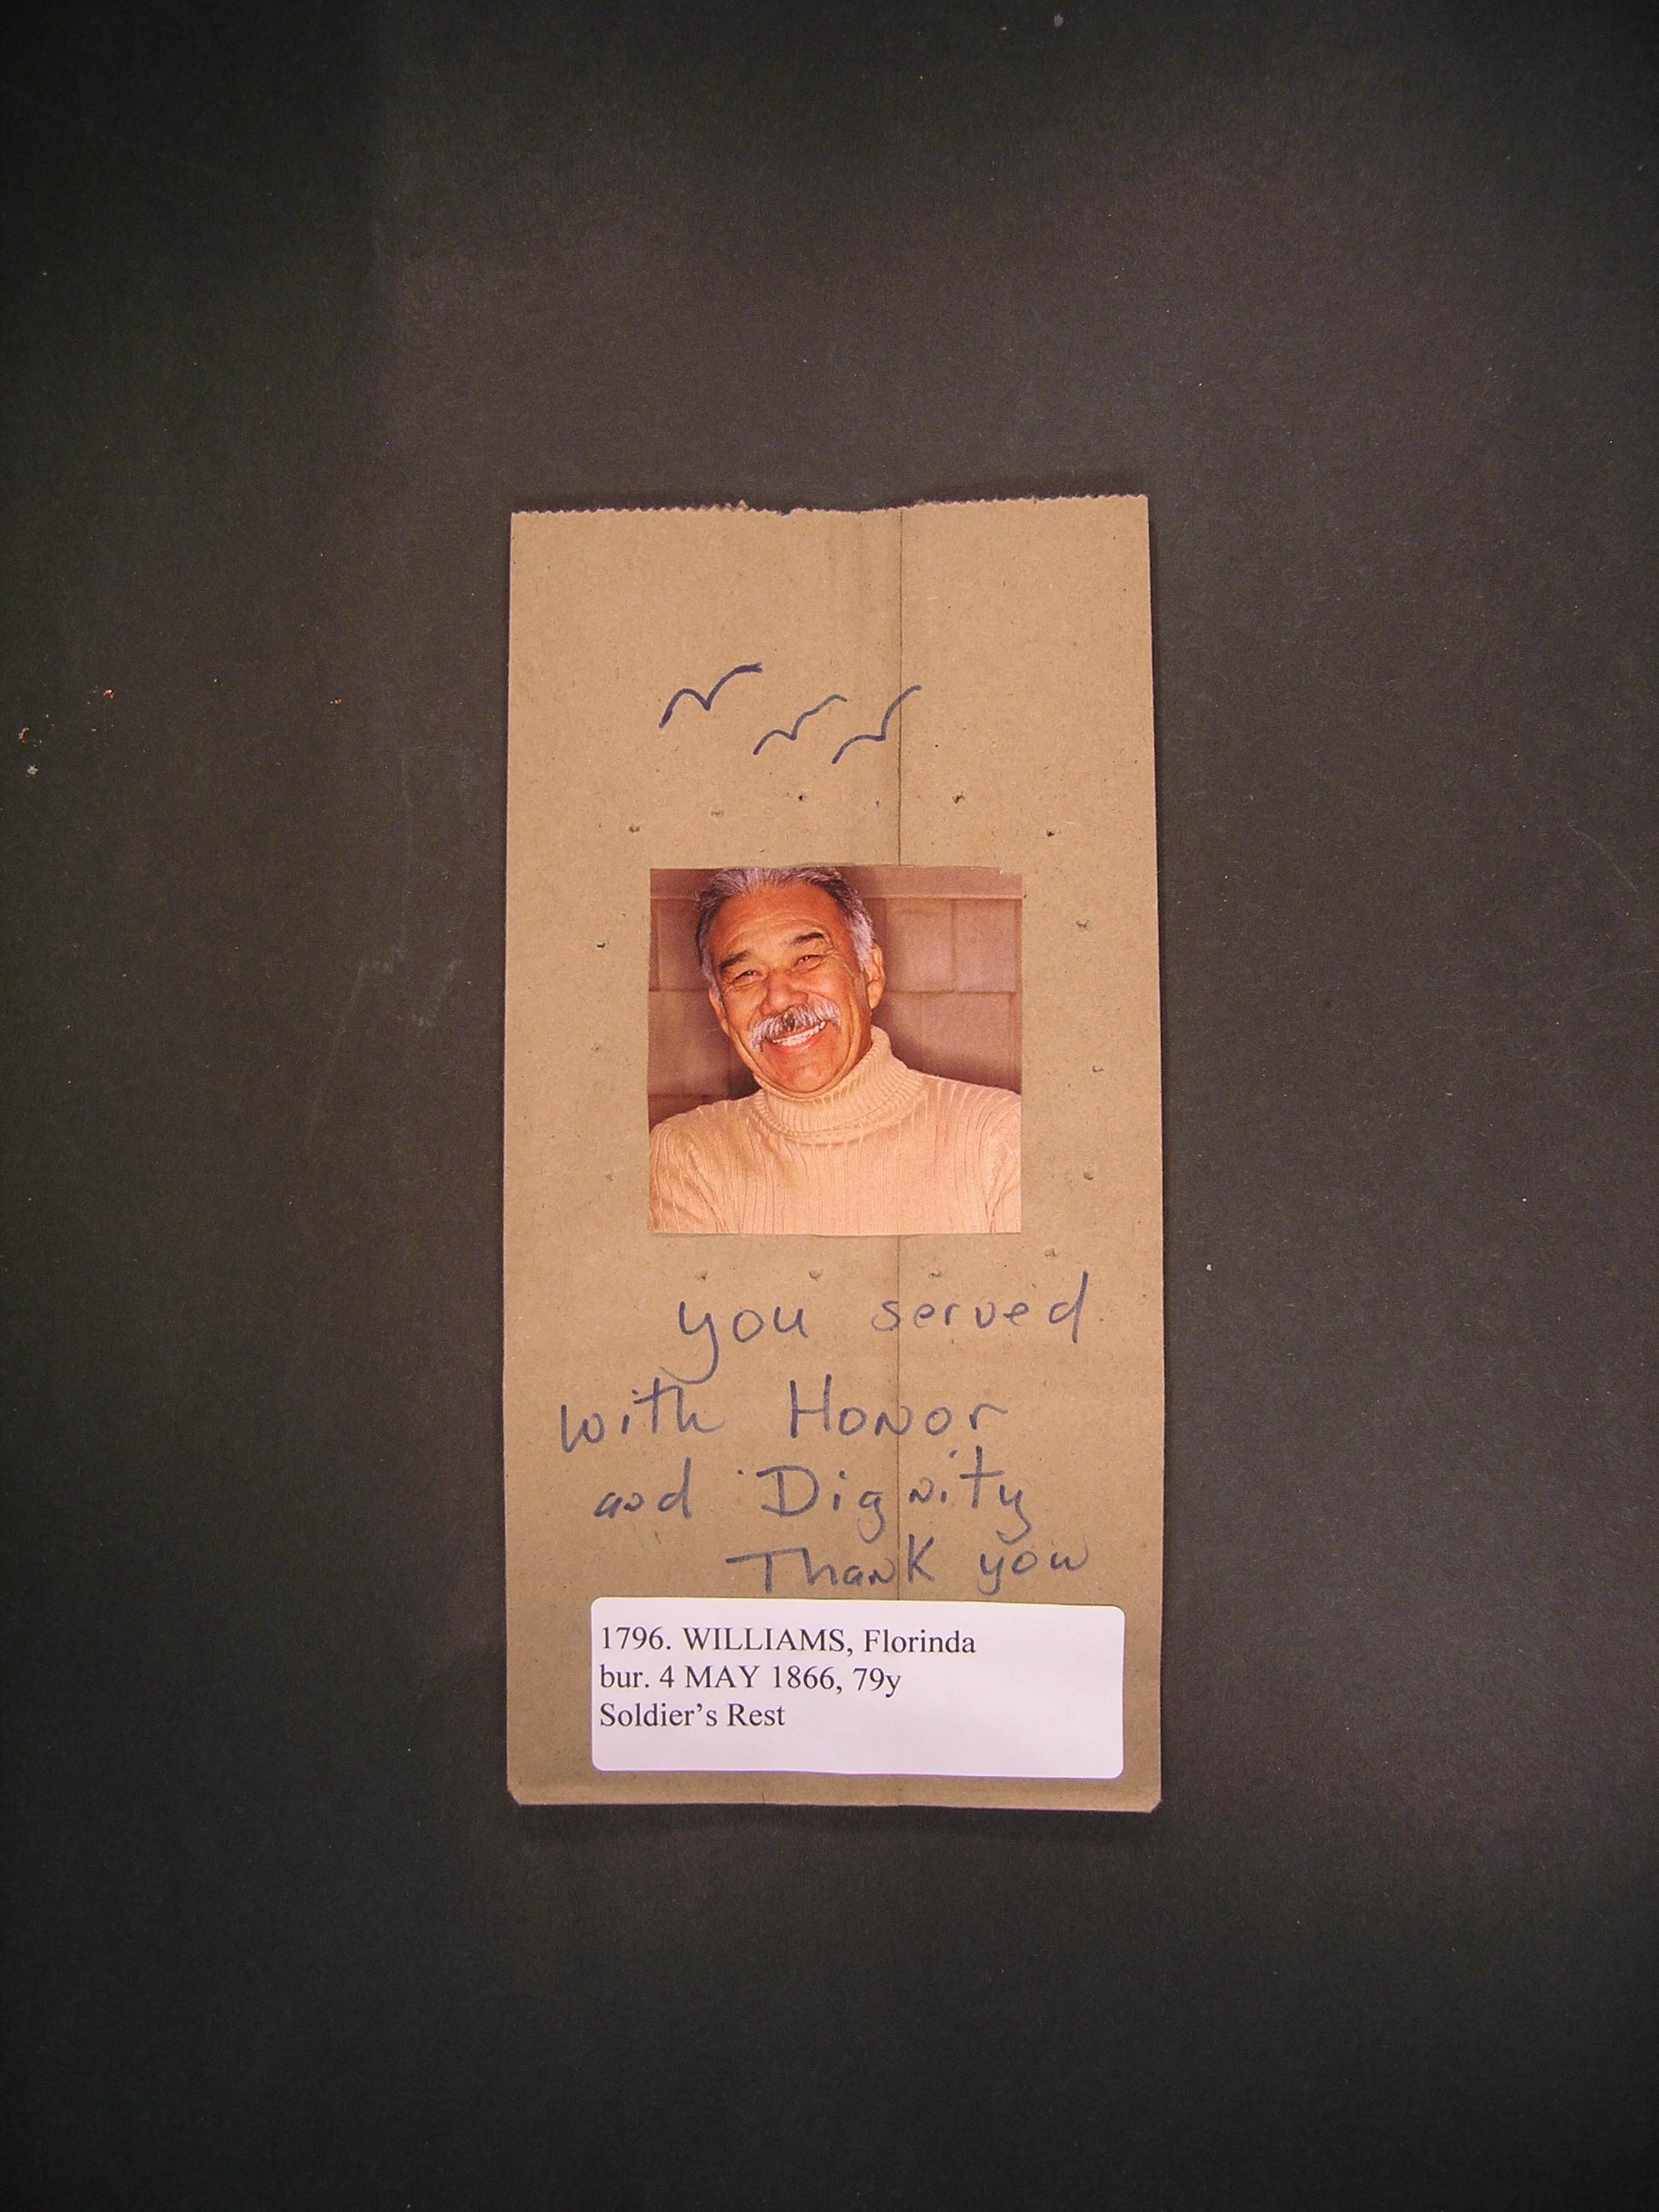 you served
with Honor
and Dignity
Thank you
1796. WILLIAMS, Florinda
bur. 4 MAY 1866, 79y
Soldier’s Rest